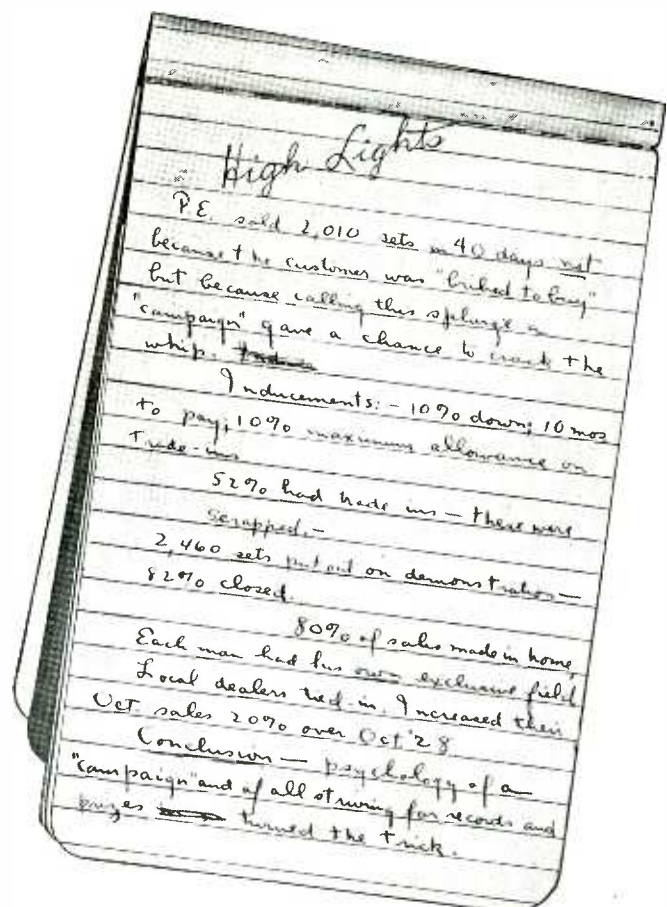 High Lights
P.E. sold 2,010 sets in 40 days not
because the customer was "bribed to buy"
but because calling this splurge a
"campaign" gave a chance to crack the
whip.
Inducements:- 10% down; 10 mos
to pay; 10% maximum allowance on
trade-ins
52% had trade ins — these were
scrapped.-
2,460 sets put out on demonstration —
82% closed.
80% of sales made in home,
Each man had his own exclusive field
Local dealers tied in. Increased their
Oct sales 20% over Oct '28
Conclusion — psychology of a
"campaign" and of all striving for records and
prizes turned the trick.